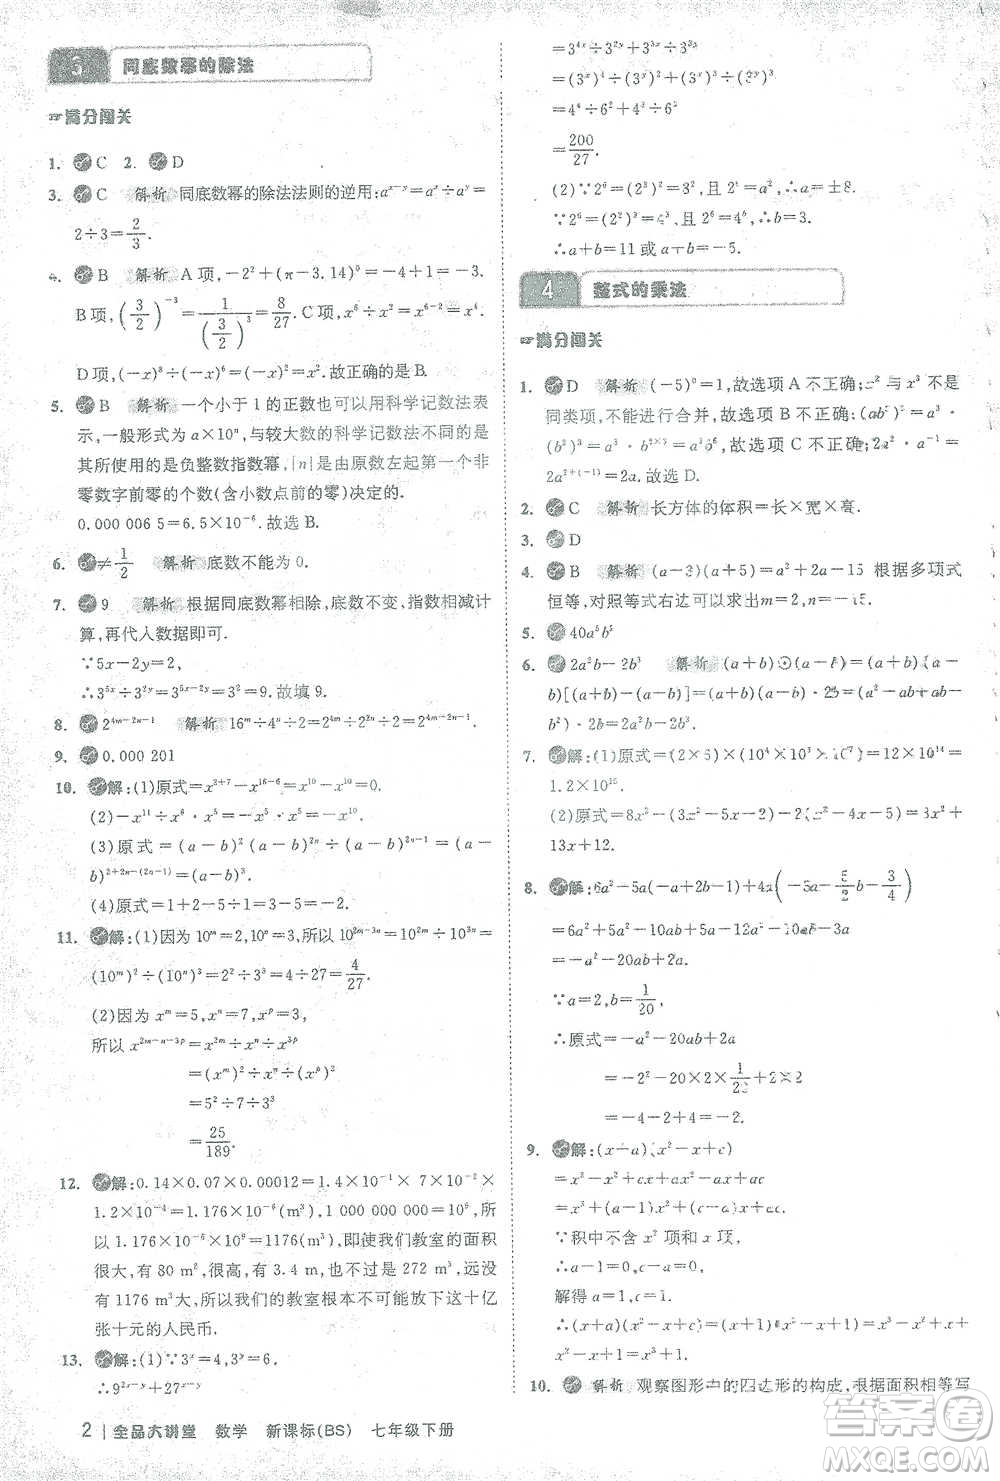 5 同底数幂的除法
☞满分闯关
1. C 2. D
3. C 解析 同底数幂的除法法则的逆用:a^{x-y}=a^x÷a^y=
2÷3=2/3.
4. B 解析 A项,-2^2+(π-3.14)^0=-4+1=-3.
B项,(3/2)^{-3}=1/(3/2)^3=8/27.C项,x^6÷x^{-6}=x^{12}.
D项,(-x)^4÷(-x)^2=x^2.故正确的是B.
5. B 解析 一个小于1的正数也可以用科学记数法表
示,一般形式为a×10^n,与较大数的科学记数法不同的是
其所使用的是负整数指数幂,|n|是由原数左起第一个非
零数字前零的个数(含小数点前的零)决定的.
0.000 006 5=6.5×10^{-6}.故选B.
6. ≠1/2 解析 底数不能为0.
7. 9 解析 根据同底数幂相除,底数不变,指数相减计
算,再代人数据即可.
∵5x-2y=2,
∴3^{5x}÷3^{2y}=3^{5x-2y}=3^2=9.故填9.
8. 2^{4m-2n-1} 解析 16^m÷4^n÷2=2^{4m}÷2^{2n}÷2=2^{4m-2n-1}.
9. 0.000 201
10. 解:(1)原式=x^{3+7}-x^{16-6}=x^{10}-x^{10}=0.
(2)-x^{11}÷x^6·x^5=-x^5·x^5=-x^{10}.
(3)原式=(a-b)^2(a-b)^{2n}÷(a-b)^{2n-1}=(a-
b)^{2+2n-(2n-1)}=(a-b)^3.
(4)原式=1+2-5=3-5=-2.
11. 解:(1)因为10^m=2,10^n=3,所以10^{2m-3n}=10^{2m}÷10^{3n}=
(10^m)^2÷(10^n)^3=2^2÷3^3=4÷27=4/27.
(2)因为x^m=5,x^n=7,x^p=3,
所以x^{2m-n-3p}=x^{2m}÷x^n÷x^{3p}
=(x^m)^2÷x^n÷(x^p)^3
=5^2÷7÷3^3
=25/189.
12. 解:0.14×0.07×0.00012=1.4×10^{-1}×7×10^{-2}×
1.2×10^{-4}=1.176×10^{-6}(m^3),1 000 000 000=10^9,所
以1.176×10^{-6}×10^9=1176(m^3),即使我们教室的面积
有80 m^2,很高,有3.4 m,但是体积不过是272 m^3,远没
有1176 m^3大,所以,我们的教室根本不可能放下这十亿
张十元的人民币.
13. 解:(1)∵3^x=4,3^y=6.
∴9^{2x-y}+27^{x-y}
=3^{4x-2y}+3^{3x-3y}
=3^{4x}÷3^{2y}+3^{3x}÷3^{3y}
=(3^x)^4÷(3^y)^2+(3^x)^3÷(3^y)^3
=4^4÷6^2+4^3÷6^3
=200/27.
(2)∵2^6=(a^2)^3=(2^2)^3,且a^2=
∵2^6=(2^2)^3=4^3,且2^6=b^3,∴b=4.
∴a+b=
4 整式的乘法
☞满分闯关
1. D 解析 (-5)^0=1,故选项A不正确;x^2与x^3不是
同类项,不能进行合并,故选项B不正确;(ab^2)^3=a^3·
(b^2)^3=a^3·b^{2×3}=a^3b^6,故选项C不正确;2a^2·a^{-1}=
2a^{2+(-1)}=2a.故选D.
2. C 解析 长方体的体积=长×宽×高.
3. D
4. B 解析 (a-3)(a+5)=a^2+2a-15,根据多项式
恒等,对照等式右边可以求出m=2,n=15.
5. 40a^5b^5
6. 2a^2b-2b^3 解析 (a+b)⊙(a-b)=[(a+b)+(a-
b)][(a+b)-(a-b)]·(a-b)=2a·2b(a-
b)·2b=2a^2b-2b^3.
7. 解:(1)原式=(2×6)×(10^4×10^3×10^7)=12×10^{14}=
1.2×10^{15}.
(2)原式=8x^2-(3x-2)(x+
13x+12.
8. 解:6a^2-5a(-a+2b-1)+4a(-5/2 b-3/4)
=6a^2+5a^2-10ab+5a-12a^2-10ab-3a
=-a^2-20ab+2a.
∵a=2,b=1/20,
∴原式=-a^2-20ab+2a
=-2^2-20×2×1/20+2×2
=-4-2+4=-2.
9. 解:(x-a)(x^2-x+c)
=x^3-x^2+cx-ax^2+ax-ac
=x^3-(a+1)x^2+(a+c)x-ac.
∵积中不含x^2项,
∴a+1=0,
解得a=-1.
10. 解析 观察图形中的四边形的构成,根据面积相等写
2 全品大讲堂 数学 新课标(BS) 七年级下册
答案圈
MXQE.COM